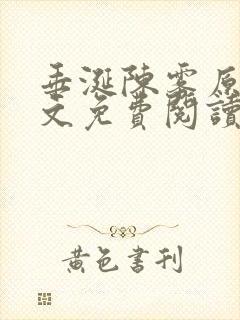 垂涎陳霧原
文免費閱讀
黃色書刊